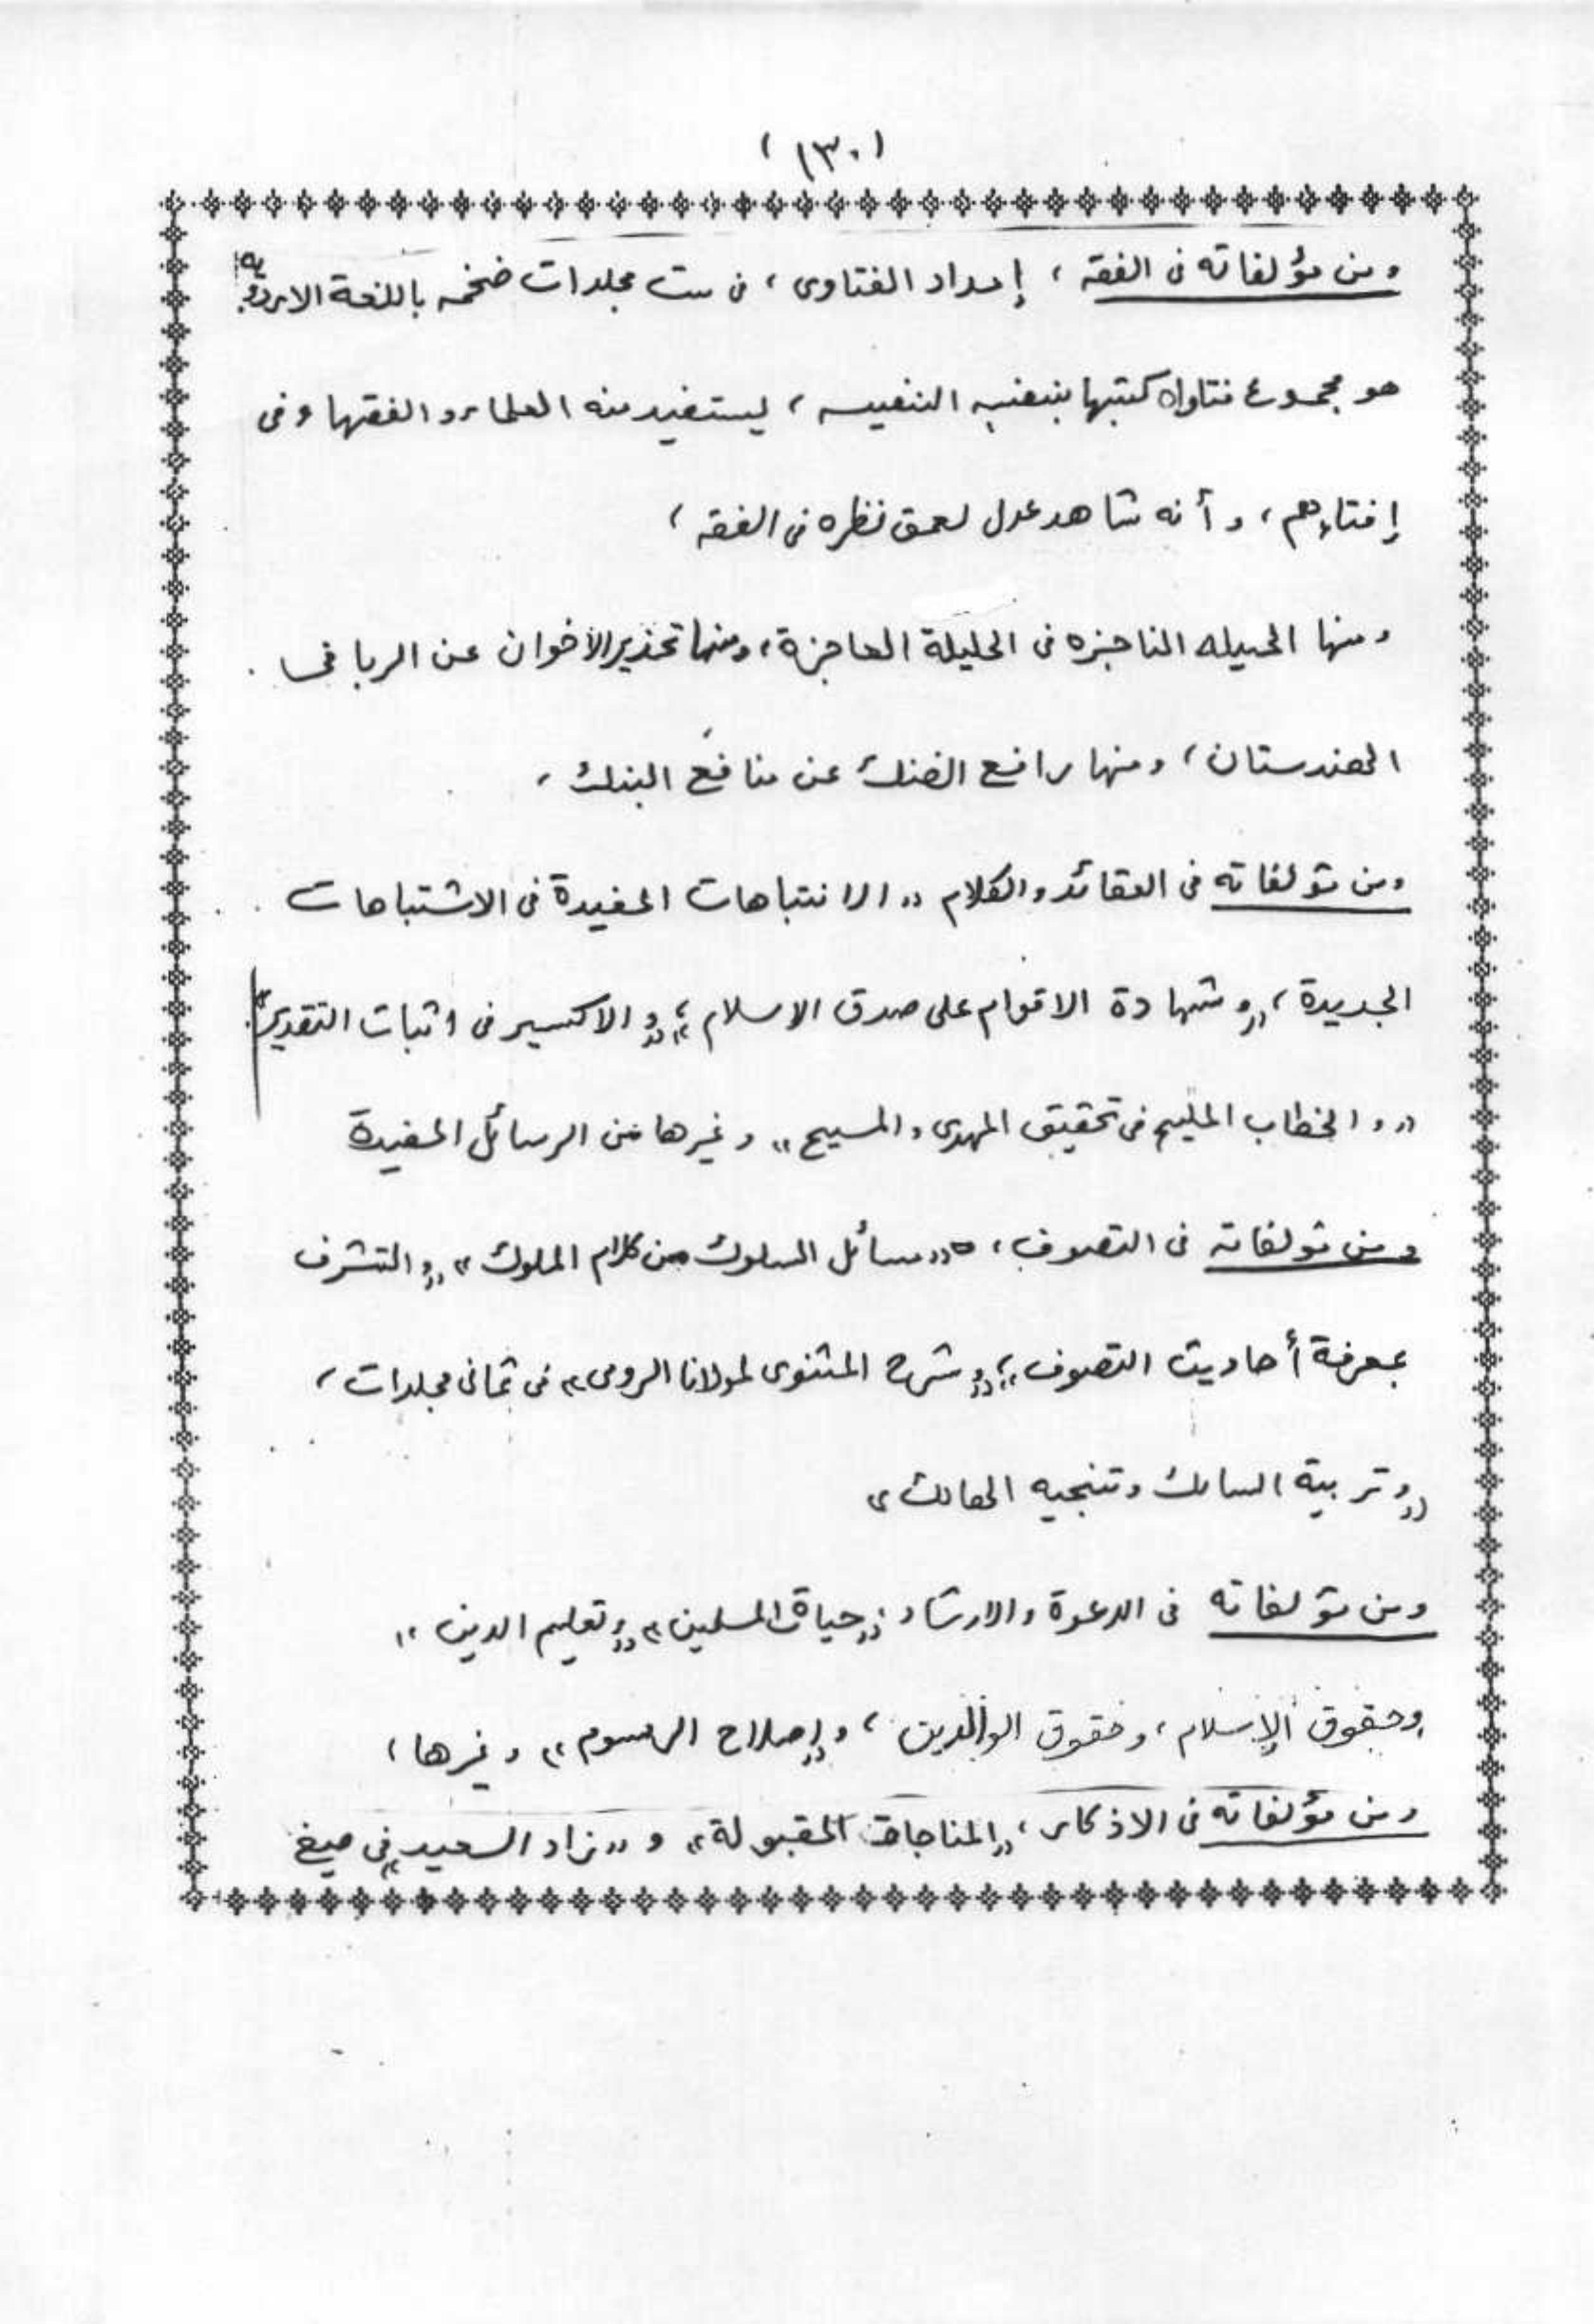 (١٣٠)
ومن مؤلفاته فى الفقه ، إمداد الفتاوى ، فى ست مجلدات ضخمه باللغة الاردويه
هو مجموع فتاواه كتبها بنفسه النفيسه ، ليستفيد منه العلماء و الفقهاء فى
إفتاءهم ، و أنه شاهد عدل لعمق نظره فى الفقه ،
ومنها الحيله الناجزه فى الحليلة العاجزة ، ومنها تحذير الأخوان عن الربا فى
الهندستان ، ومنها رافع الضنك عن منافع البنك ،
ومن مؤلفاته فى العقائد والكلام „ الانتباهات المفيدة فى الاشتباهات
الجديدة ، „و شهادة الاقوام على صدق الاسلام „ ، „و الاكسير فى اثبات التقدير„
„ و الخطاب المليح فى تحقيق المهدى والمسيح „ وغيرها من الرسائل المفيدة
ومن مؤلفاته فى التصوف ، „مسائل السلوك من كلام الملوك „ „و التشرف
بمعرفة أحاديث التصوف „ ، „و شرح المثنوى لمولانا الرومى „ فى ثمانى مجلدات ،
„و تربية السالك وتنجيه الهالك „
ومن مؤلفاته فى الدعوة والارشاد „ حياة المسلمين „ „و تعليم الدين „
وحقوق الإسلام ، وحقوق الوالدين ، و„إصلاح الرسوم „ وغيرها ،
ومن مؤلفاته فى الاذكار ، „المناجات المقبولة „ و „زاد السعيد„ فى صيغ